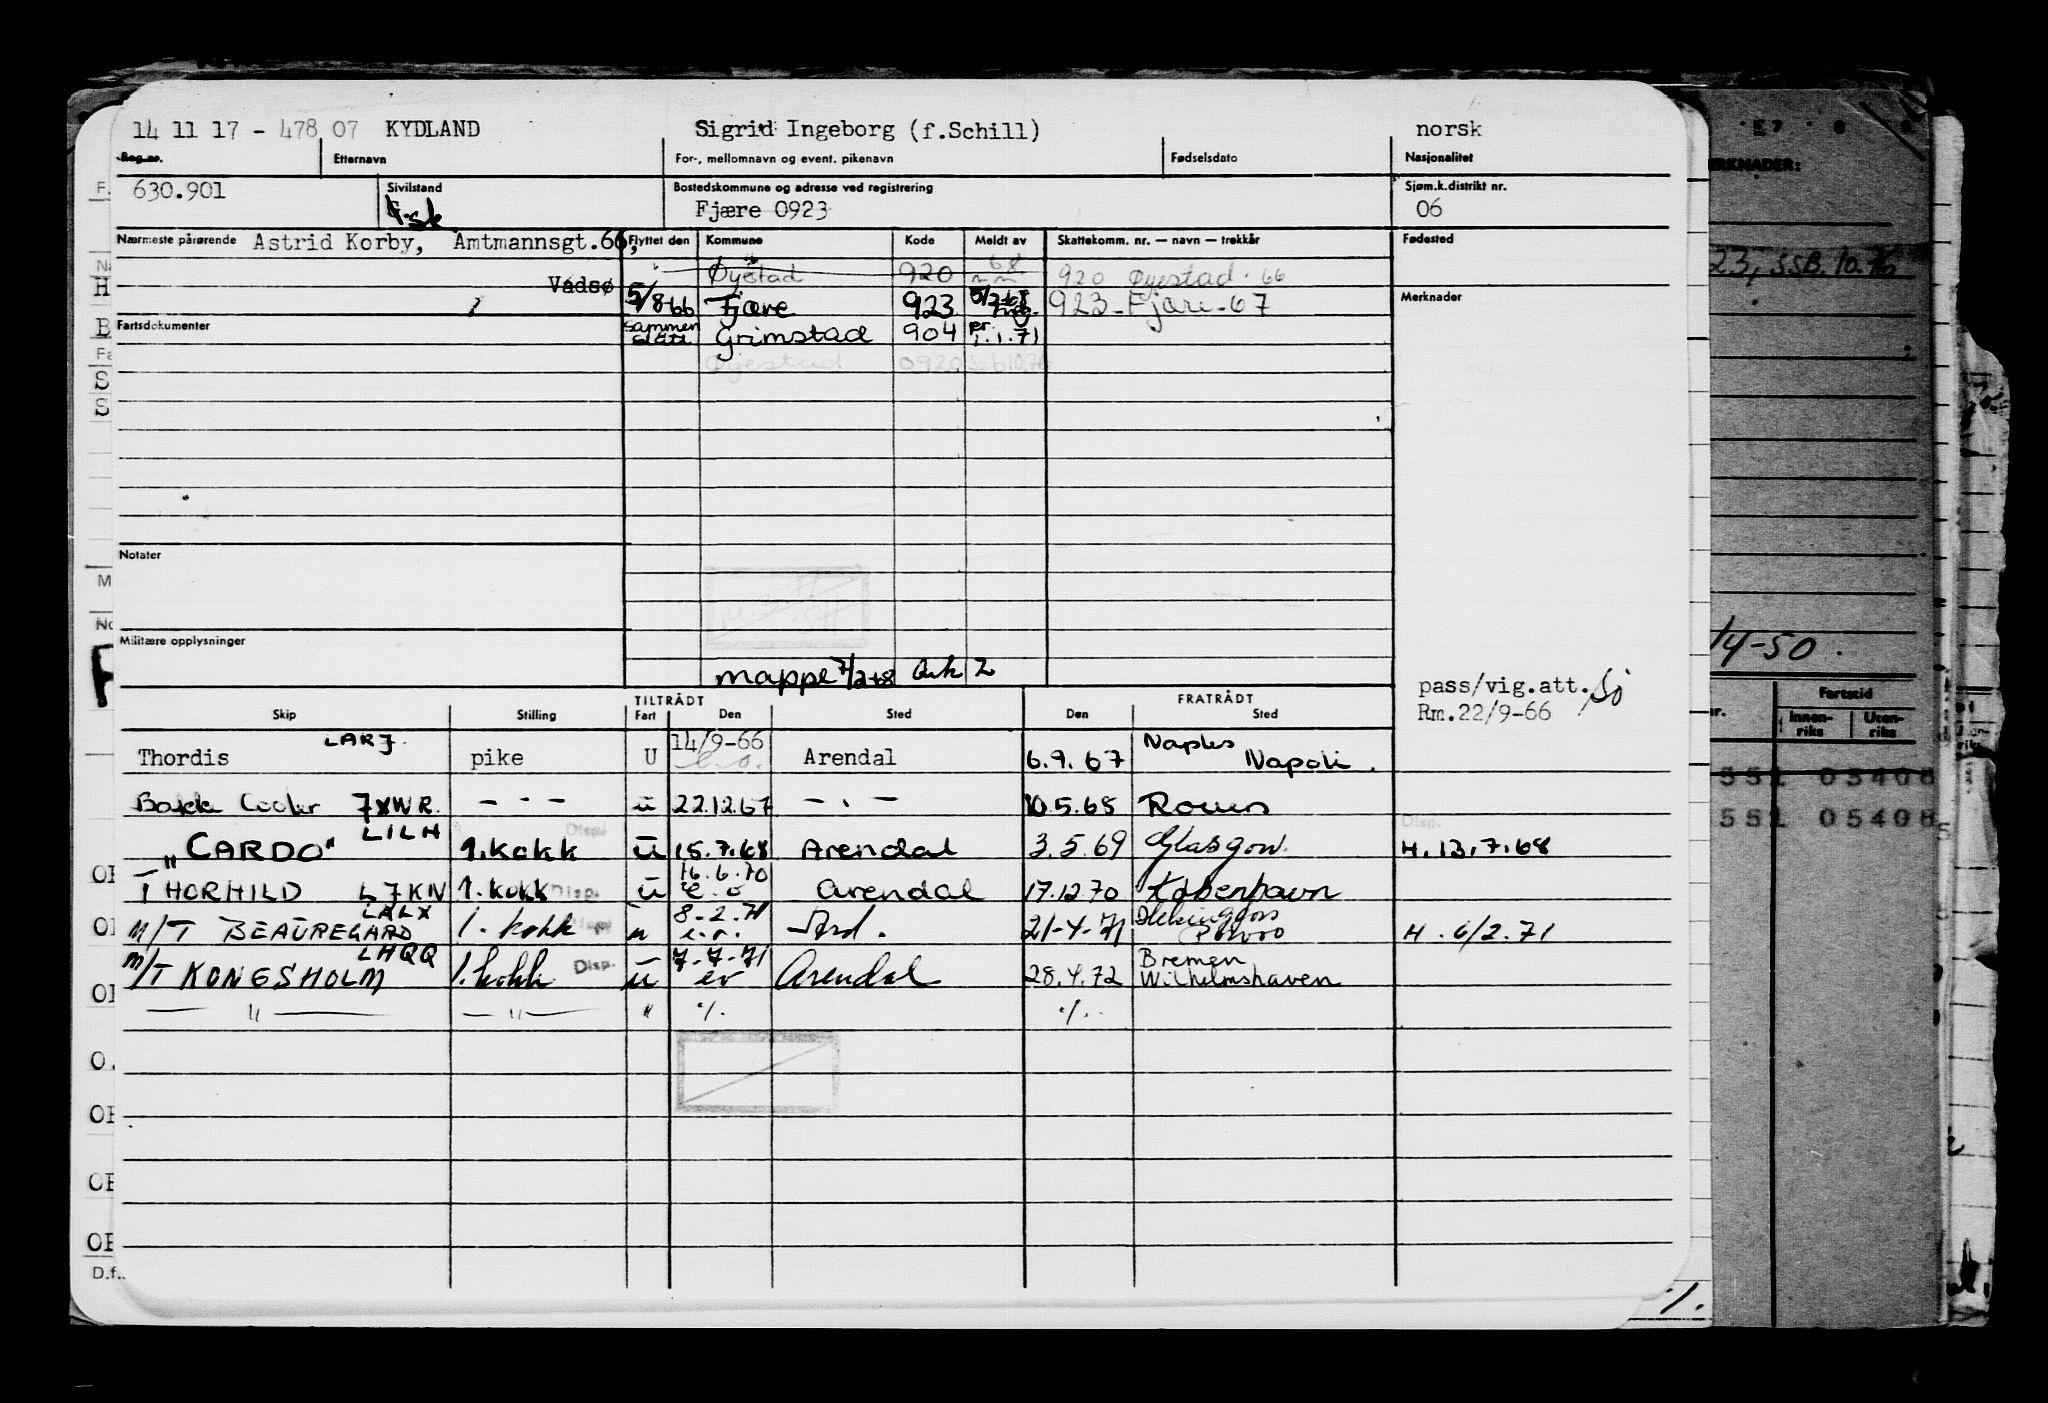 14 11 17 - 478 07 KYDLAND Sigrid Ingeborg (f.Schill) norsk
Reg.nr. Etternavn For-, mellomnavn og event. pikenavn Fødselsdato Nasjonalitet
630.901 Sivilstand Bostedskommune og adresse ved registrering Sjøm.k.distrikt nr.
f.sk Fjære 0923 06
Nærmeste pårørende Astrid Korby, Amtmannsgt.66, Flyttet den Kommune Kode Meldt av Skattekomm. nr. — navn — trekkår Fødested
Øyestad 920 68 920 Øyestad. 66
Vadsø 5/8-66 Fjære 923 923-Fjære-67 Merknader
Fartsdokumenter sammen slått Grimstad 904 pr. 1.1.71
Øyestad 0920 Ssb 10.76
Notater
Militære opplysninger
mappe 7/2-68 Ark 2
pass/vig.att.
Rm.22/9-66
TILTRÅDT FRATRÅDT
Skip Stilling Fart Den Sted Den Sted
Thordis LARJ pike U 14/9-66 Arendal 6.9.67 Naples Napoli.
Cooler 7XWR. — - — u 22.12.67 — . — 10.5.68
"CARDO" LILH 1.kokk Disp. u 15.7.68 Arendal 3.5.69 Glasgow. H.13.7.68
THORHILD LJKN 1.kokk Disp. u 16.6.70 e.o Arendal 17.12.70 København
M/T BEAUREGARD LALX 1. kokk u 8-2.71 e.o. Ard. 21-4-71 Helsingfors Porvoo H. 6/2.71
M/T KONGSHOLM LHQQ 1.kokk Disp. u 7-7-71 eo Arendal 28.4.72 Bremen Wilhelmshaven
— " — — " — " ./. ./.
23, SSB.10.76
14-50.
Fartstid
Innen-riks Uten-riks
551 05408
551 05408
D.f.
./.